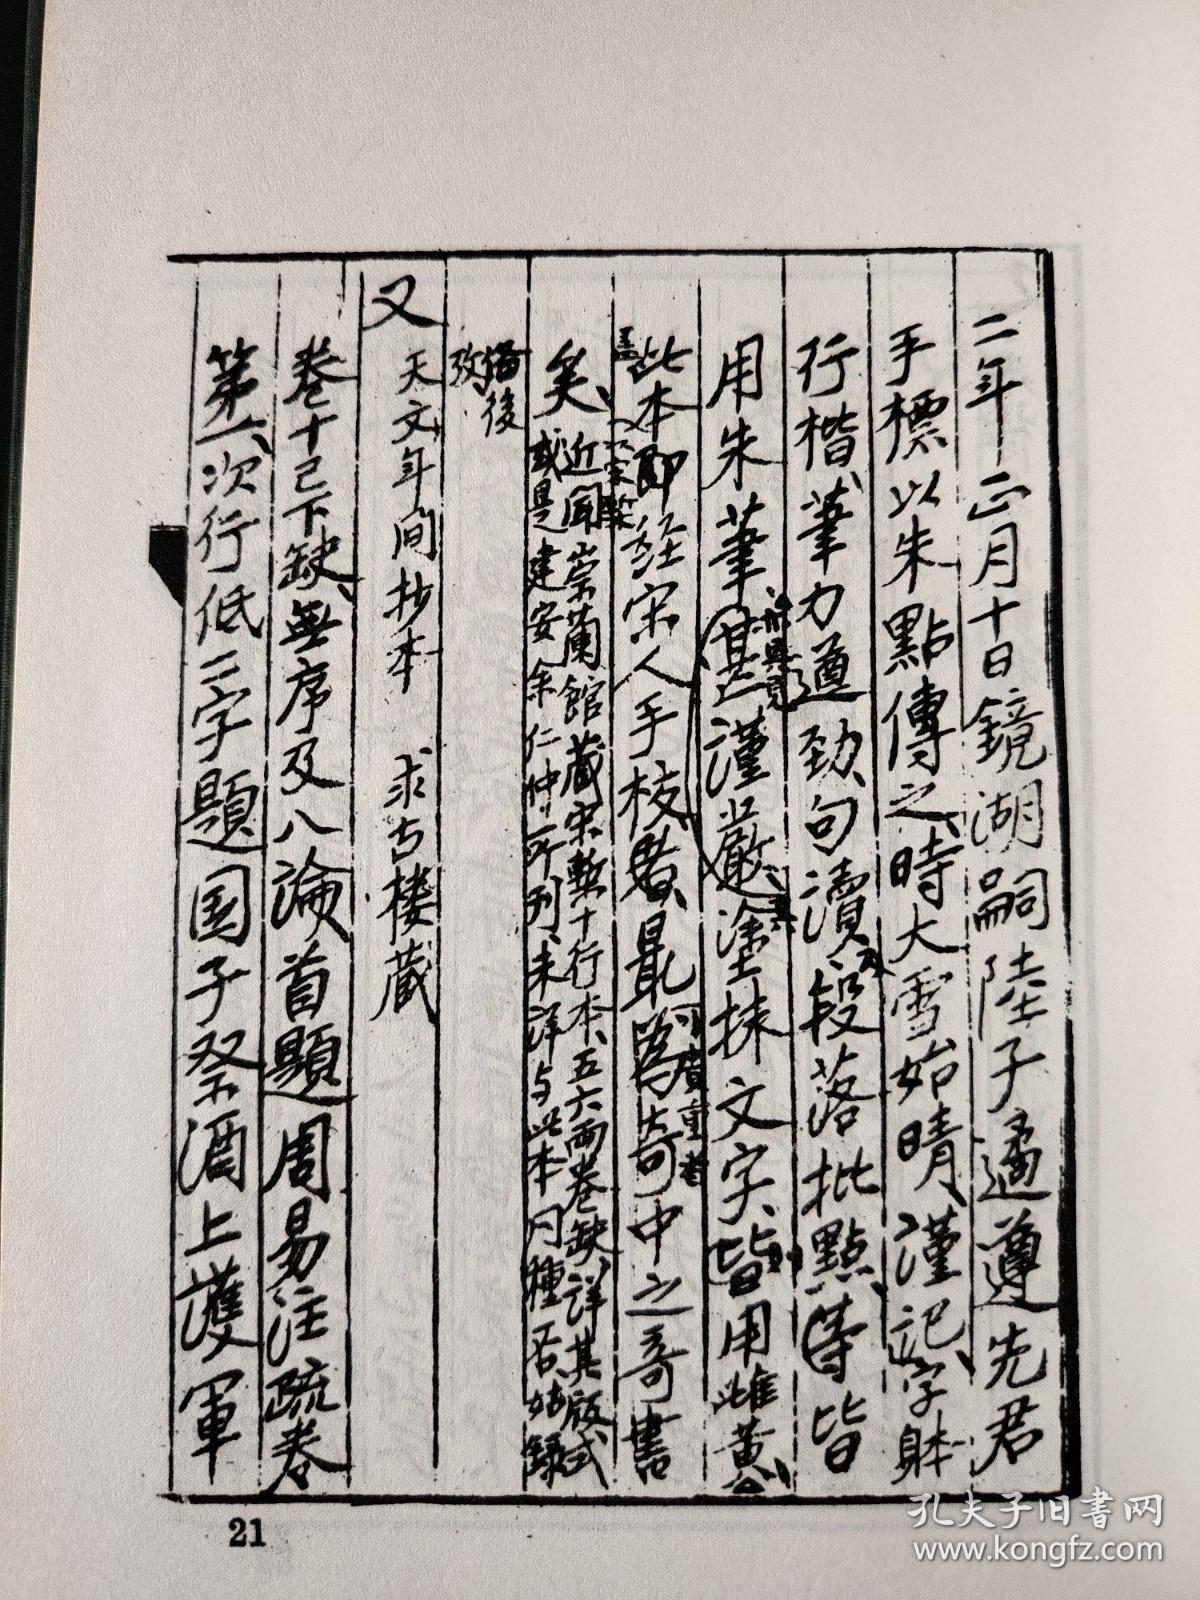 二年正月十日鏡湖嗣陸子遹遵先君
手標以朱點傳之時大雪始晴謹記字躰
行楷筆力遒勁句瀆段落批點等皆
用朱筆甚謹嚴塗抹文字皆用雌黃
亦具見
此本即經宋人手校者最為奇中之奇書
可貴重者
矣
近聞崇蘭館藏宋槧十行本五六兩卷缺詳其版式
或是建安余仁仲所刊未詳与此本同種否姑錄
後
攷
又
天文年間抄本 求古樓藏
卷十已下缺無序及八論首題周易注疏卷
第一次行低二字題国子祭酒上護軍
21
孔夫子旧書网
www.kongfz.com